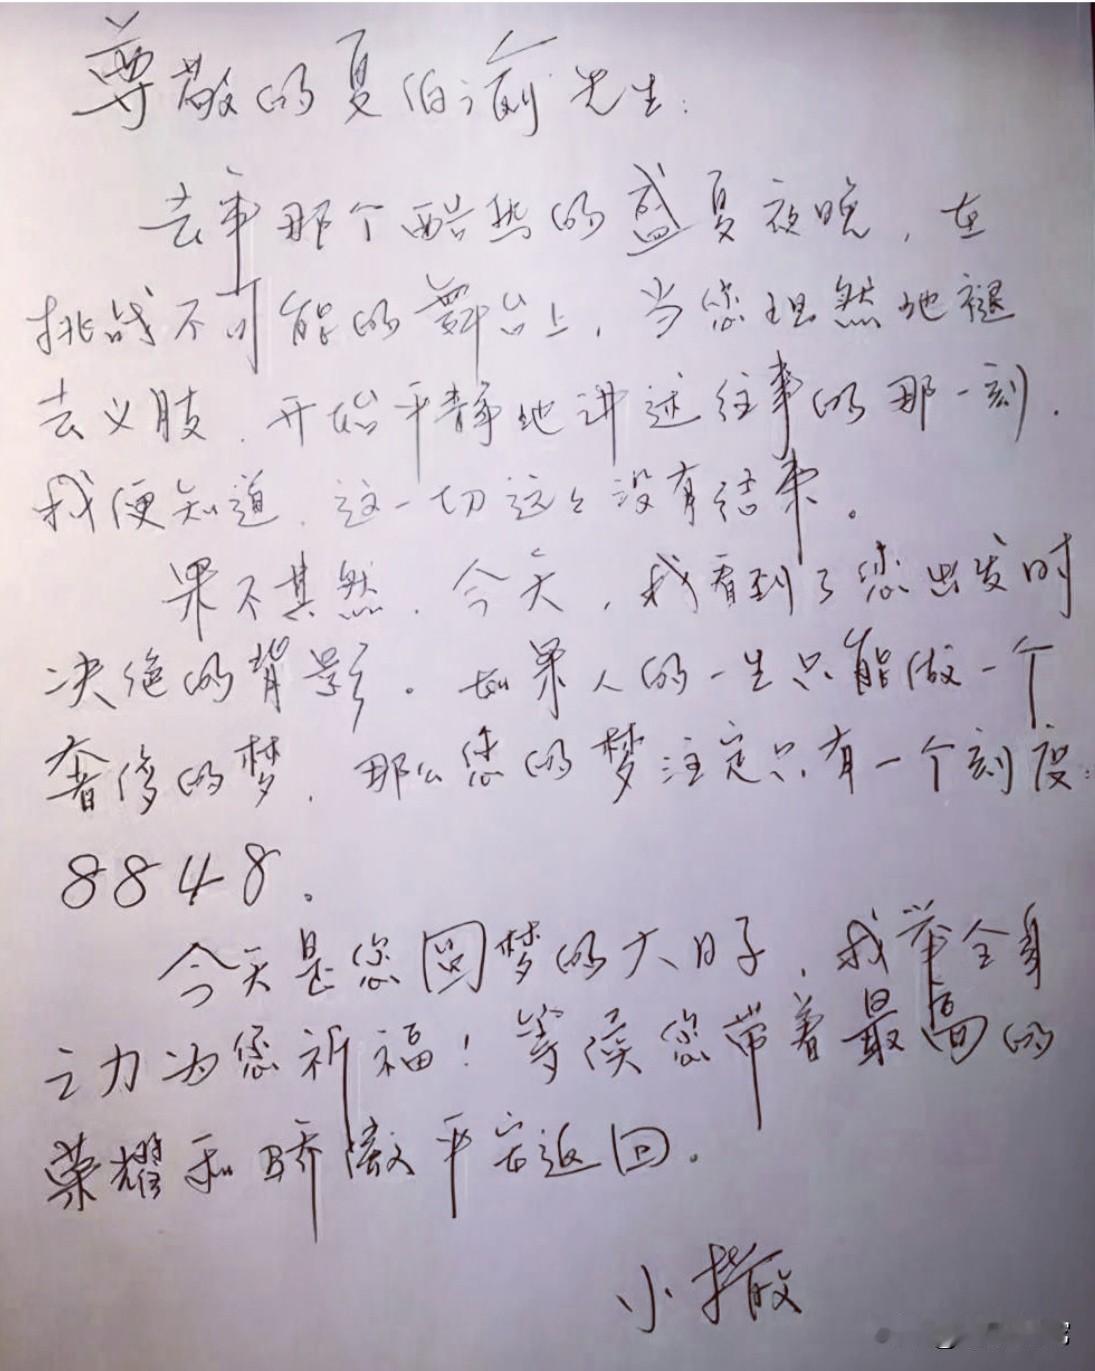 尊敬的夏伯渝先生:
去年那个酷热的盛夏夜晚,在
挑战不可能的舞台上,当您坦然地褪
去义肢,开始平静地讲述往事的那一刻,
我便知道,这一切远远没有结束。
果不其然,今天,我看到了您出发时
决绝的背影。如果人的一生只能做一个
奢侈的梦,那么您的梦注定只有一个刻度:
8848。
今天是您圆梦的大日子,我举全身
之力为您祈福!等候您带着最高的
荣耀和骄傲平安返回。
小撒